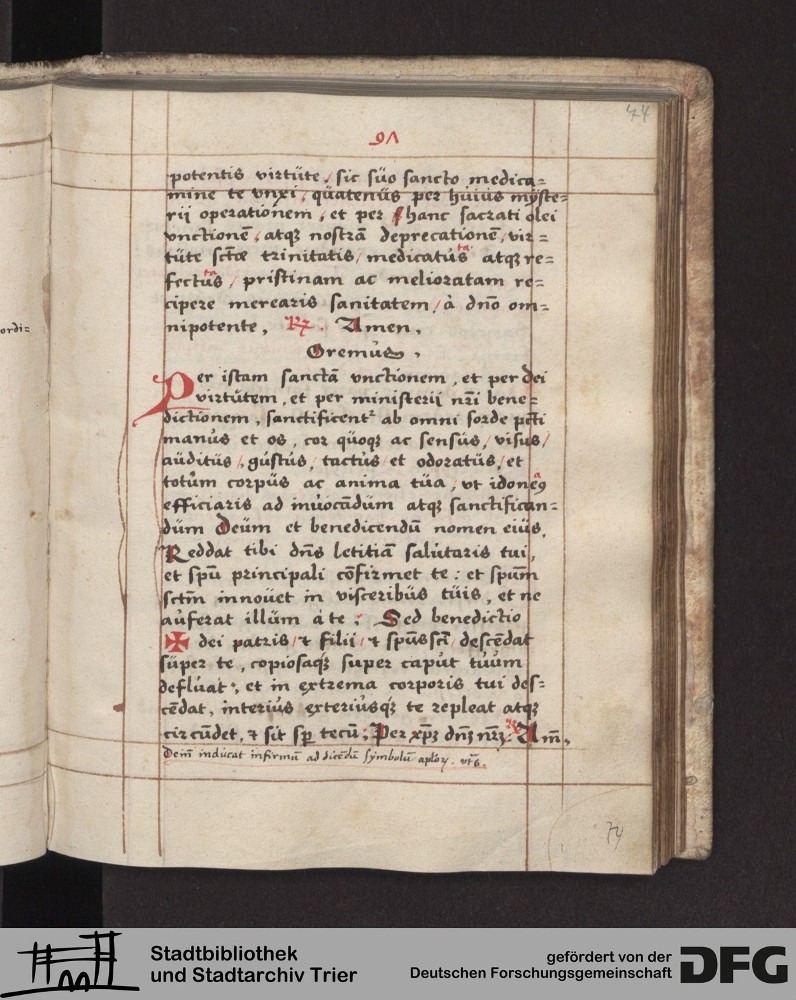 44
potentis virtüte, sic süo sancto medica=
mine te vnxi, qüatenüs per hüiüs myste=
rij operationem, et per hanc sacrati olei
vnctionē, atqꝫ nostrā deprecationē, vir=
tüte sctæ trinitatis, medicatüs ta atqꝫ re=
fectüs ta, pristinam ac melioratam re=
cipere merearis sanitatem, à dño om=
nipotente, ℟. Amen,
Oremüs,
Per istam sanctā vnctionem, et per dei
virtütem, et per ministerij nr̄i bene=
dictionem, sanctificent᷑ ab omni sorde pcti
manüs et os, cor qüoqꝫ ac sensüs, visus,
aüditüs, güstüs, tactüs et odoratüs, et
totüm corpüs ac anima tüa, vt idoneꝯ a
efficiaris ad inüocādüm atqꝫ sanctifican=
düm Deüm et benedicendū nomen eiüs,
Reddat tibi dñs letitiā salütaris tui,
et spū principali cōfirmet te: et spūm
sctm̄ innoüet in visceribüs tüis, et ne
aüferat illüm à te; Sed benedictio
✠ dei patris, & filii, & spūssctī, descēdat
süper te, copiosaqꝫ super capüt tüüm
deflüat, et in extrema corporis tui des=
cēdat, interiüs exteriüsqꝫ te repleat atqꝫ
circūdet, & sit sp̄ tecū; Per xp̄ꝫ dn̄ꝫ nr̄ꝫ. ℟ Am̄,
Dein̄ indücat infirmū ad dicēdū symbolū aplor̄. vt s.
74
ordi=
Stadtbibliothek
und Stadtarchiv Trier
gefördert von der
Deutschen Forschungsgemeinschaft
DFG